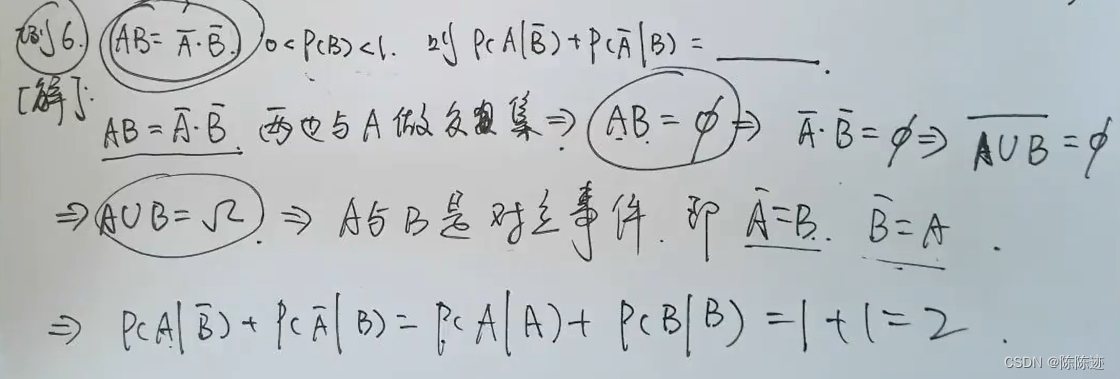 例6. AB=Ā·B̄. 0<P(B)<1. 则 P(A|B̄)+P(Ā|B)=______.
[解]:
AB=Ā·B̄. 两边与A做交集⇒ AB=φ ⇒ Ā·B̄=φ⇒ \overline{A∪B}=φ
⇒ A∪B=Ω. ⇒ A与B是对立事件. 即 Ā=B. B̄=A.
⇒ P(A|B̄)+P(Ā|B)=P(A|A)+P(B|B)=1+1=2.
CSDN @陈陈迹